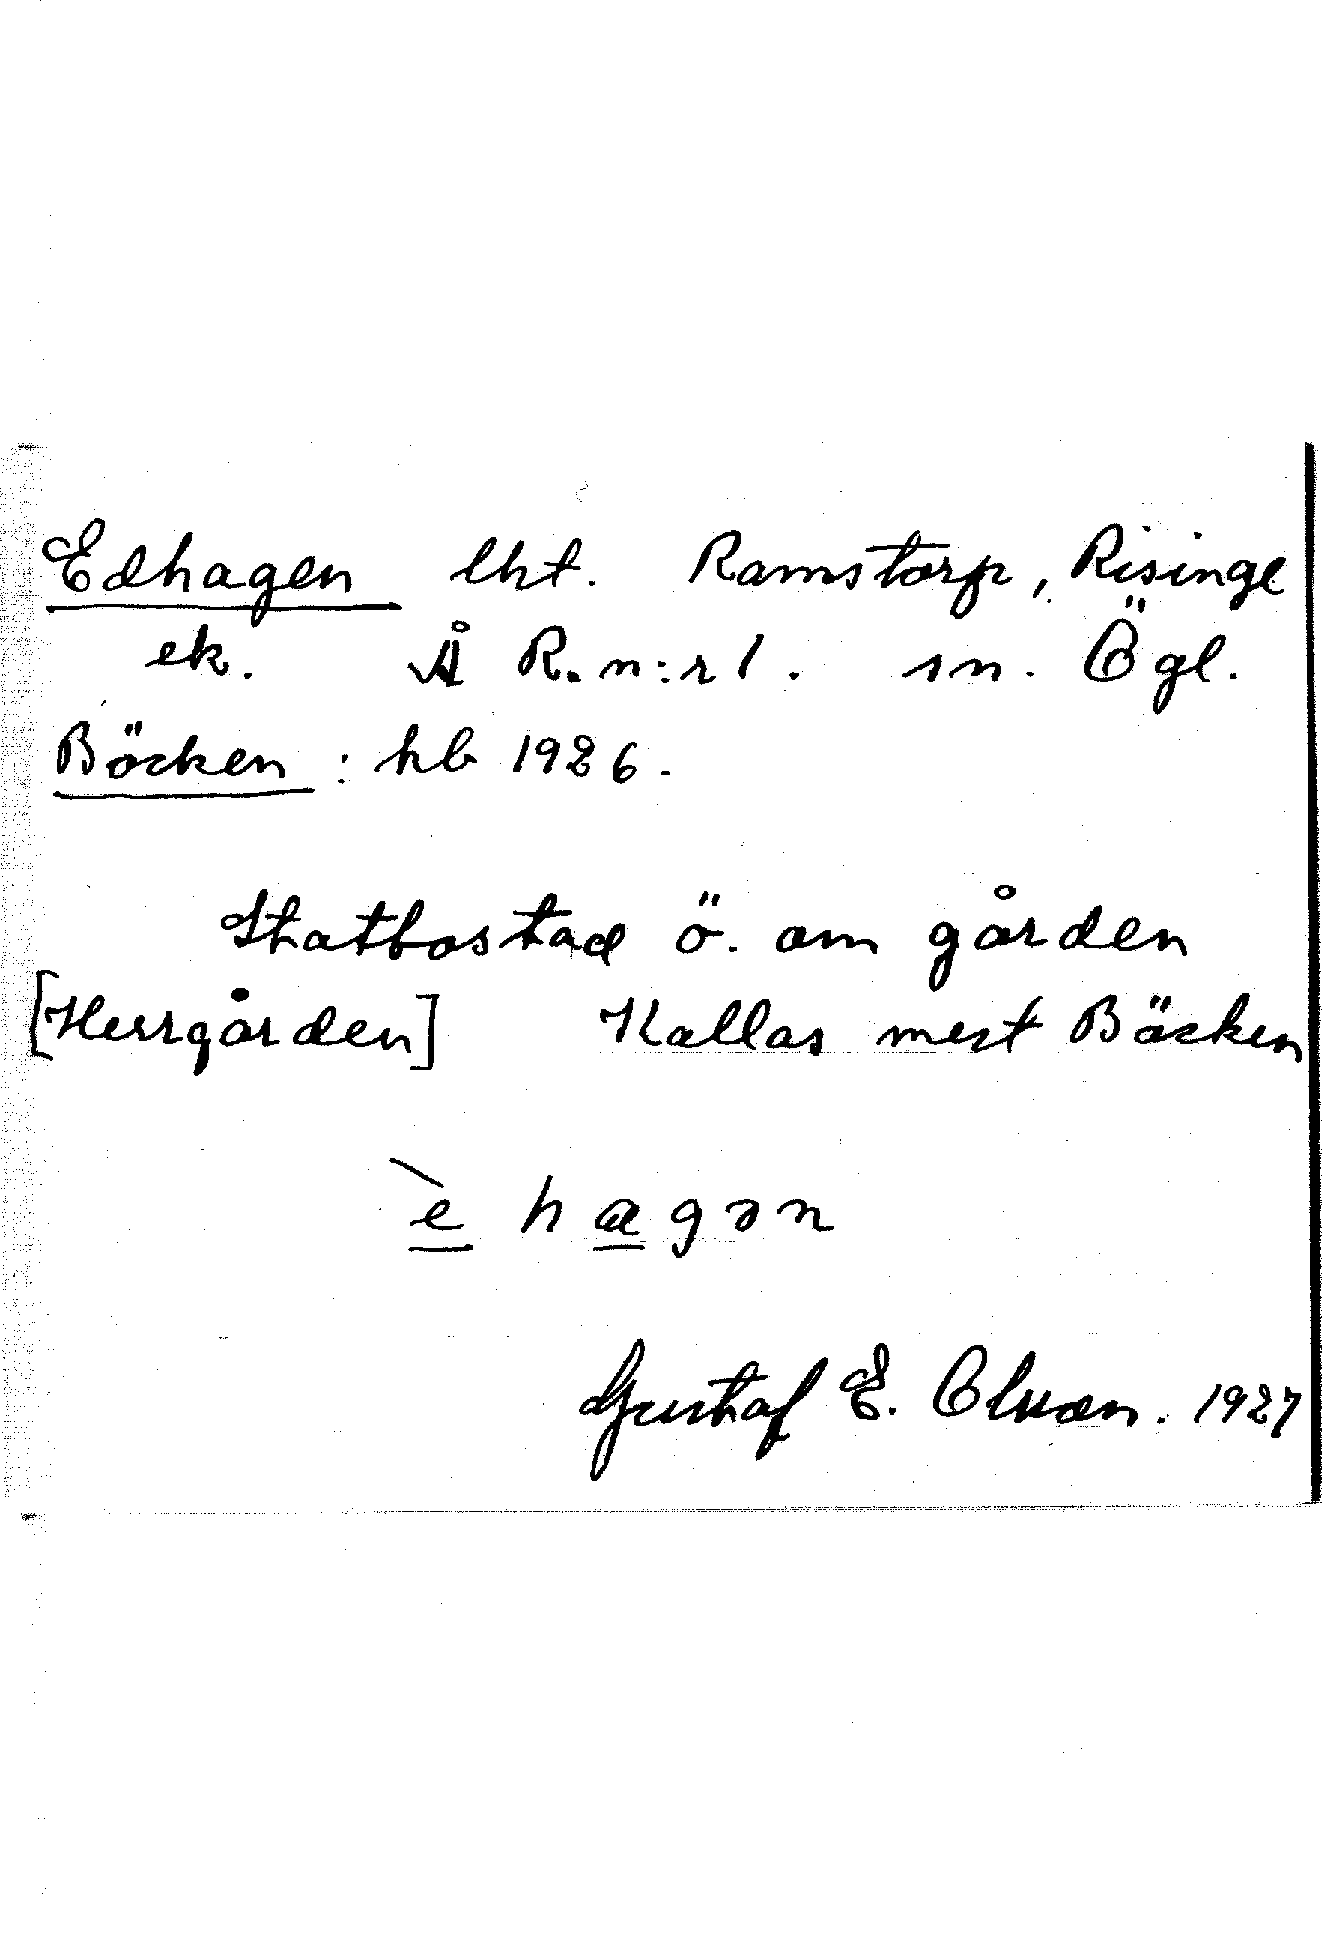 Edhagen lht. Ramstorp, Risinge
ek. Å R. n:r 1. sn. Ögl.
Böcken : hb 1926.
Statbostad ö. om gården
[Herrgården] Kallas mest Böcken
è hagən
Gustaf E. Olsson. 1927